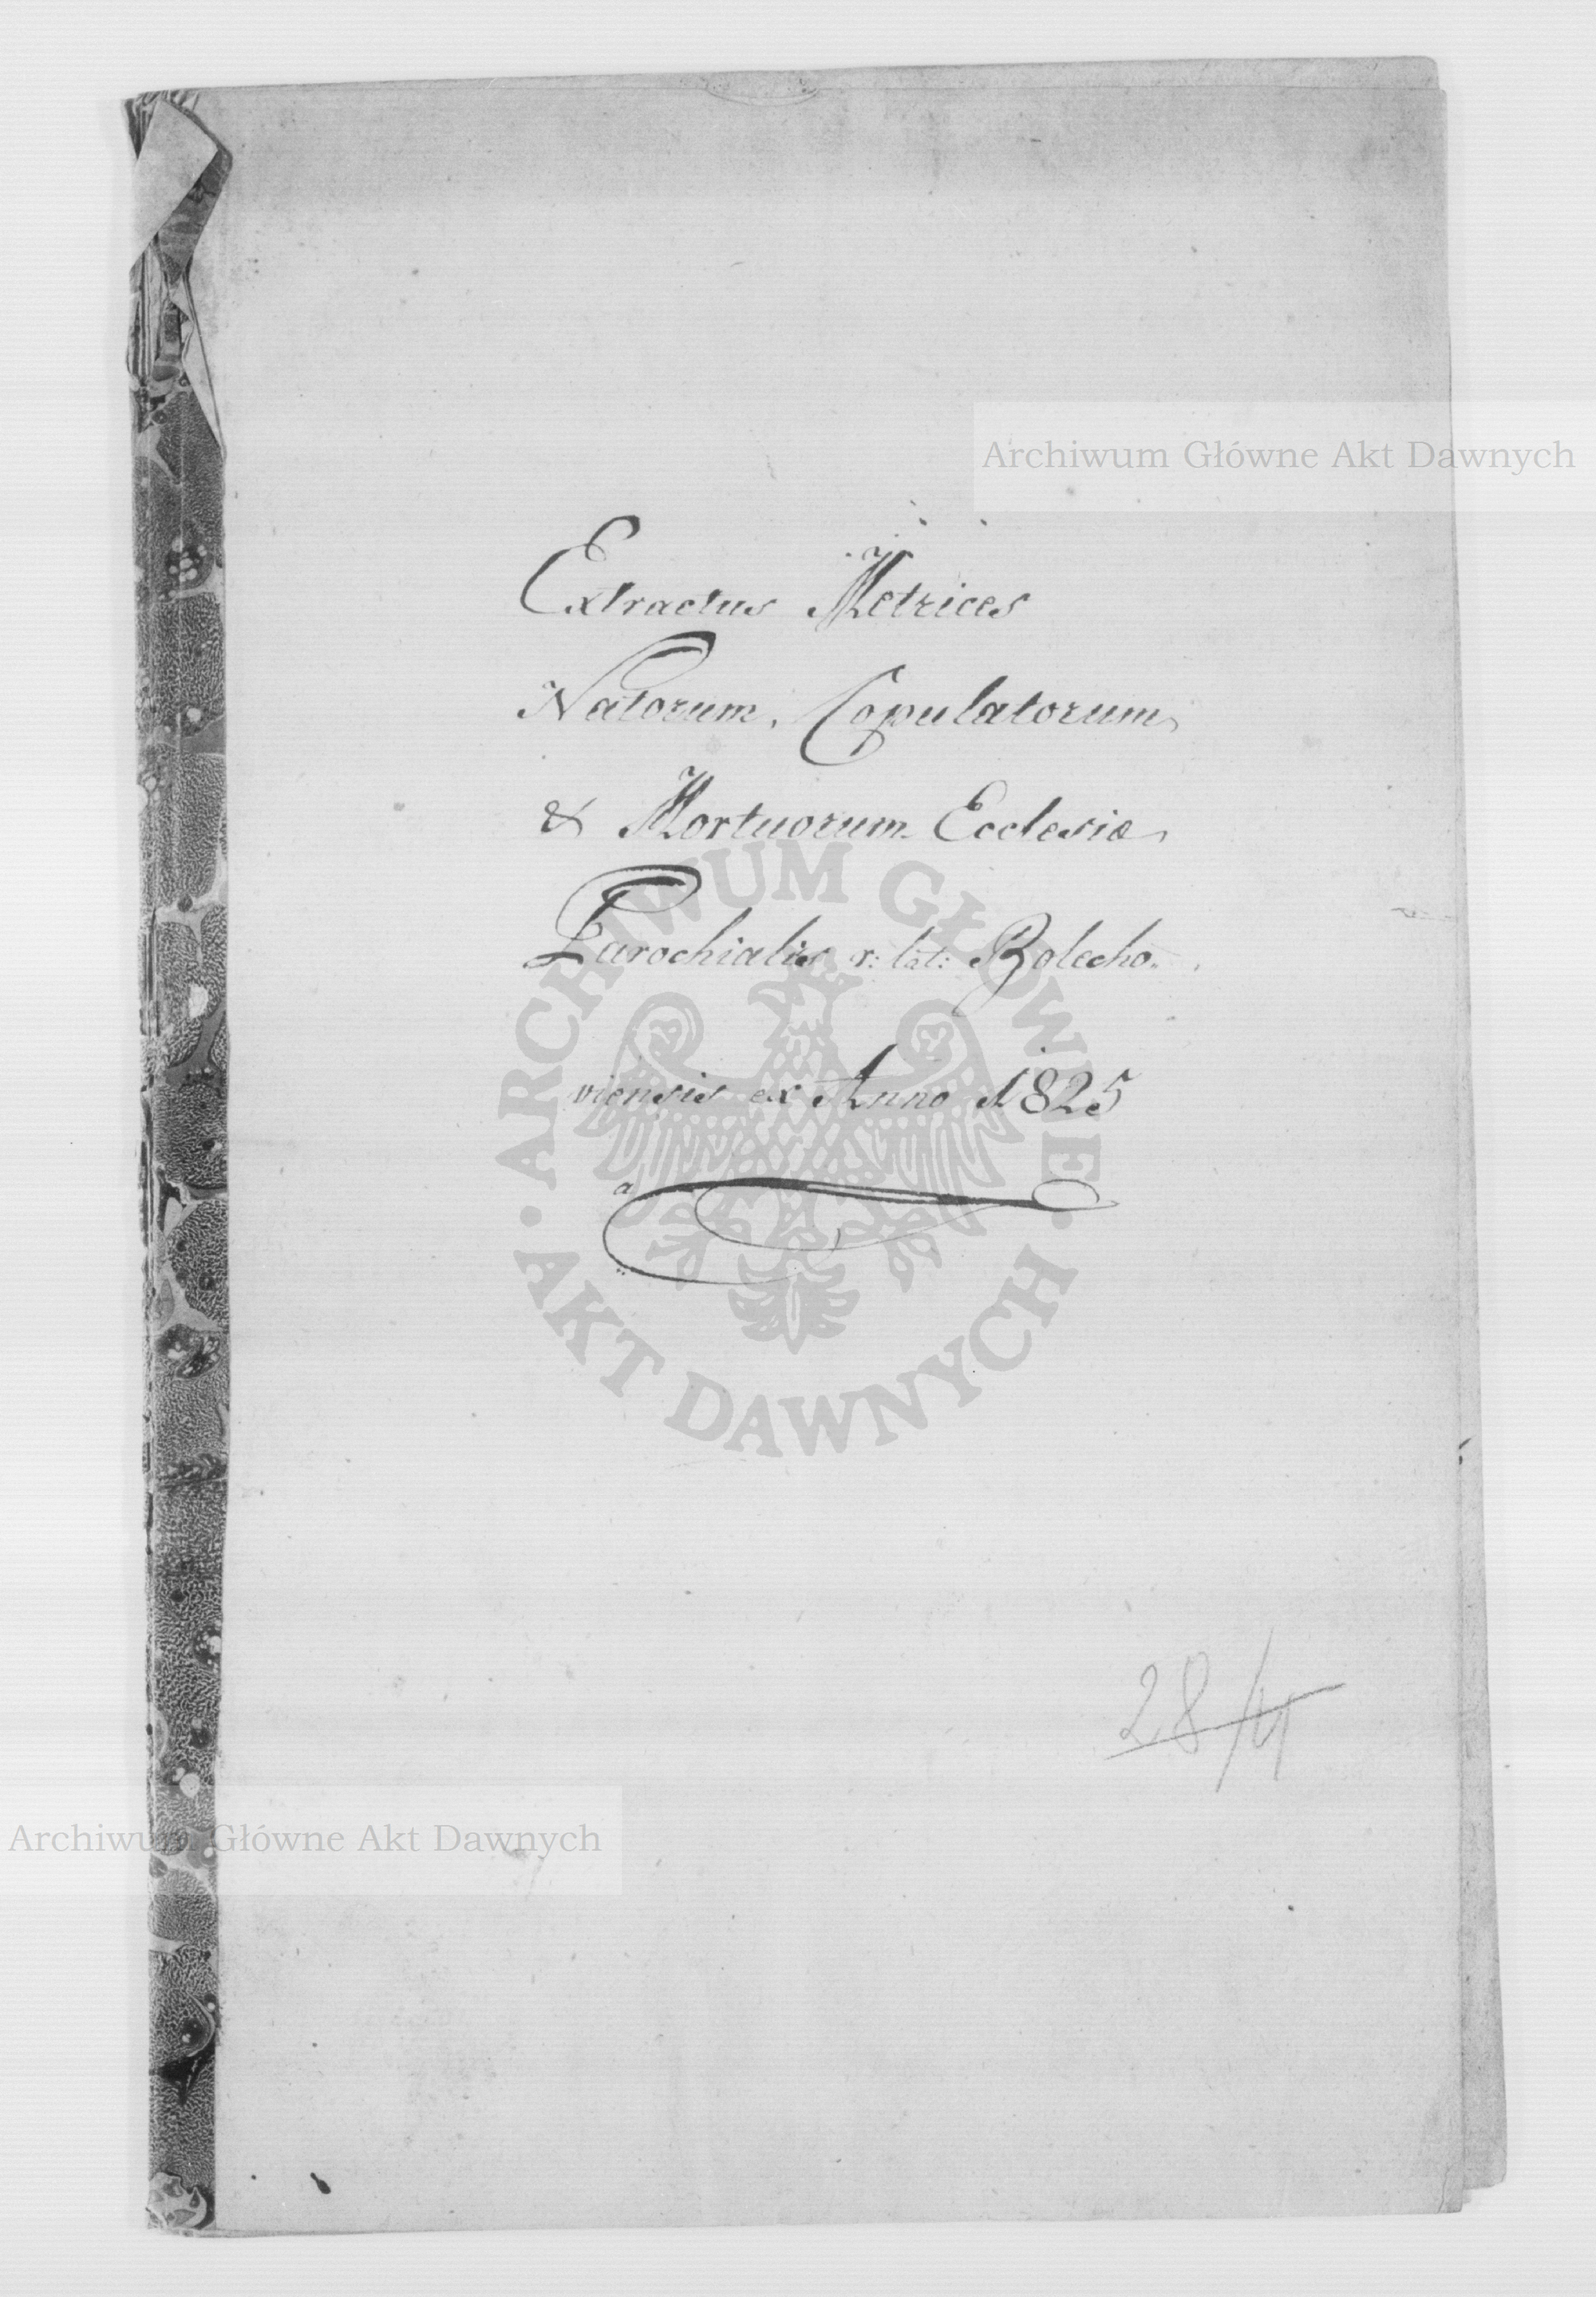 Archiwum Główne Akt Dawnych
Extractus Metrices
Natorum, Copulatorum
& Mortuorum Ecclesiæ
Parochialis r: lat: Bolecho-
viensis ex Anno 1825
ARCHIWUM GŁÓWNE
AKT DAWNYCH
28/4
Archiwum Główne Akt Dawnych